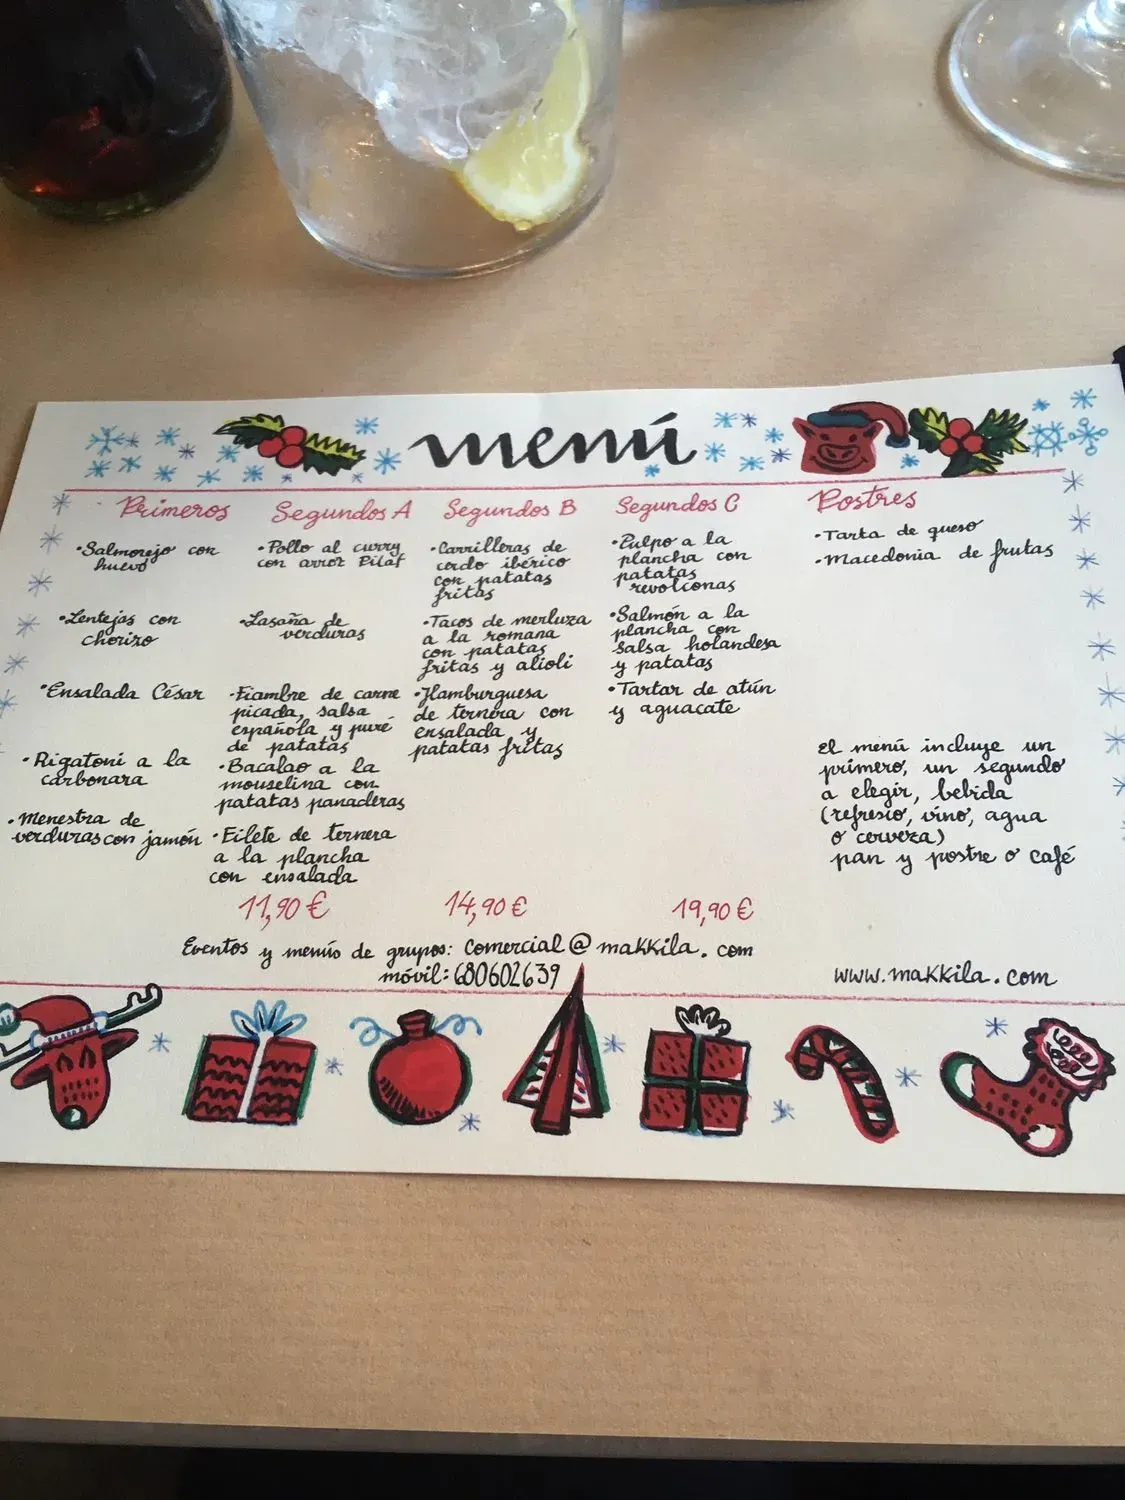 menú
Primeros
·Salmorejo con
huevo
·Lentejas con
chorizo
·Ensalada César
·Rigatoni a la
carbonara
·Menestra de
verduras con jamón
Segundos A
·Pollo al curry
con arroz Pilaf
·Lasaña de
verduras
·Fiambre de carne
picada, salsa
española y puré
de patatas
·Bacalao a la
mouselina con
patatas panaderas
·Filete de ternera
a la plancha
con ensalada
11,90 €
Segundos B
·Carrilleras de
cerdo ibérico
con patatas
fritas
·Tacos de merluza
a la romana
con patatas
fritas y alioli
·Hamburguesa
de ternera con
ensalada y
patatas fritas
14,90 €
Segundos C
·Pulpo a la
plancha con
patatas
revolconas
·Salmón a la
plancha con
salsa holandesa
y patatas
·Tartar de atún
y aguacate
19,90 €
Postres
·Tarta de queso
·Macedonia de frutas
El menú incluye un
primero, un segundo
a elegir, bebida
(refresco, vino, agua
o cerveza)
pan y postre o café
Eventos y menús de grupos: comercial@makkila.com
móvil: 680602639
www.makkila.com